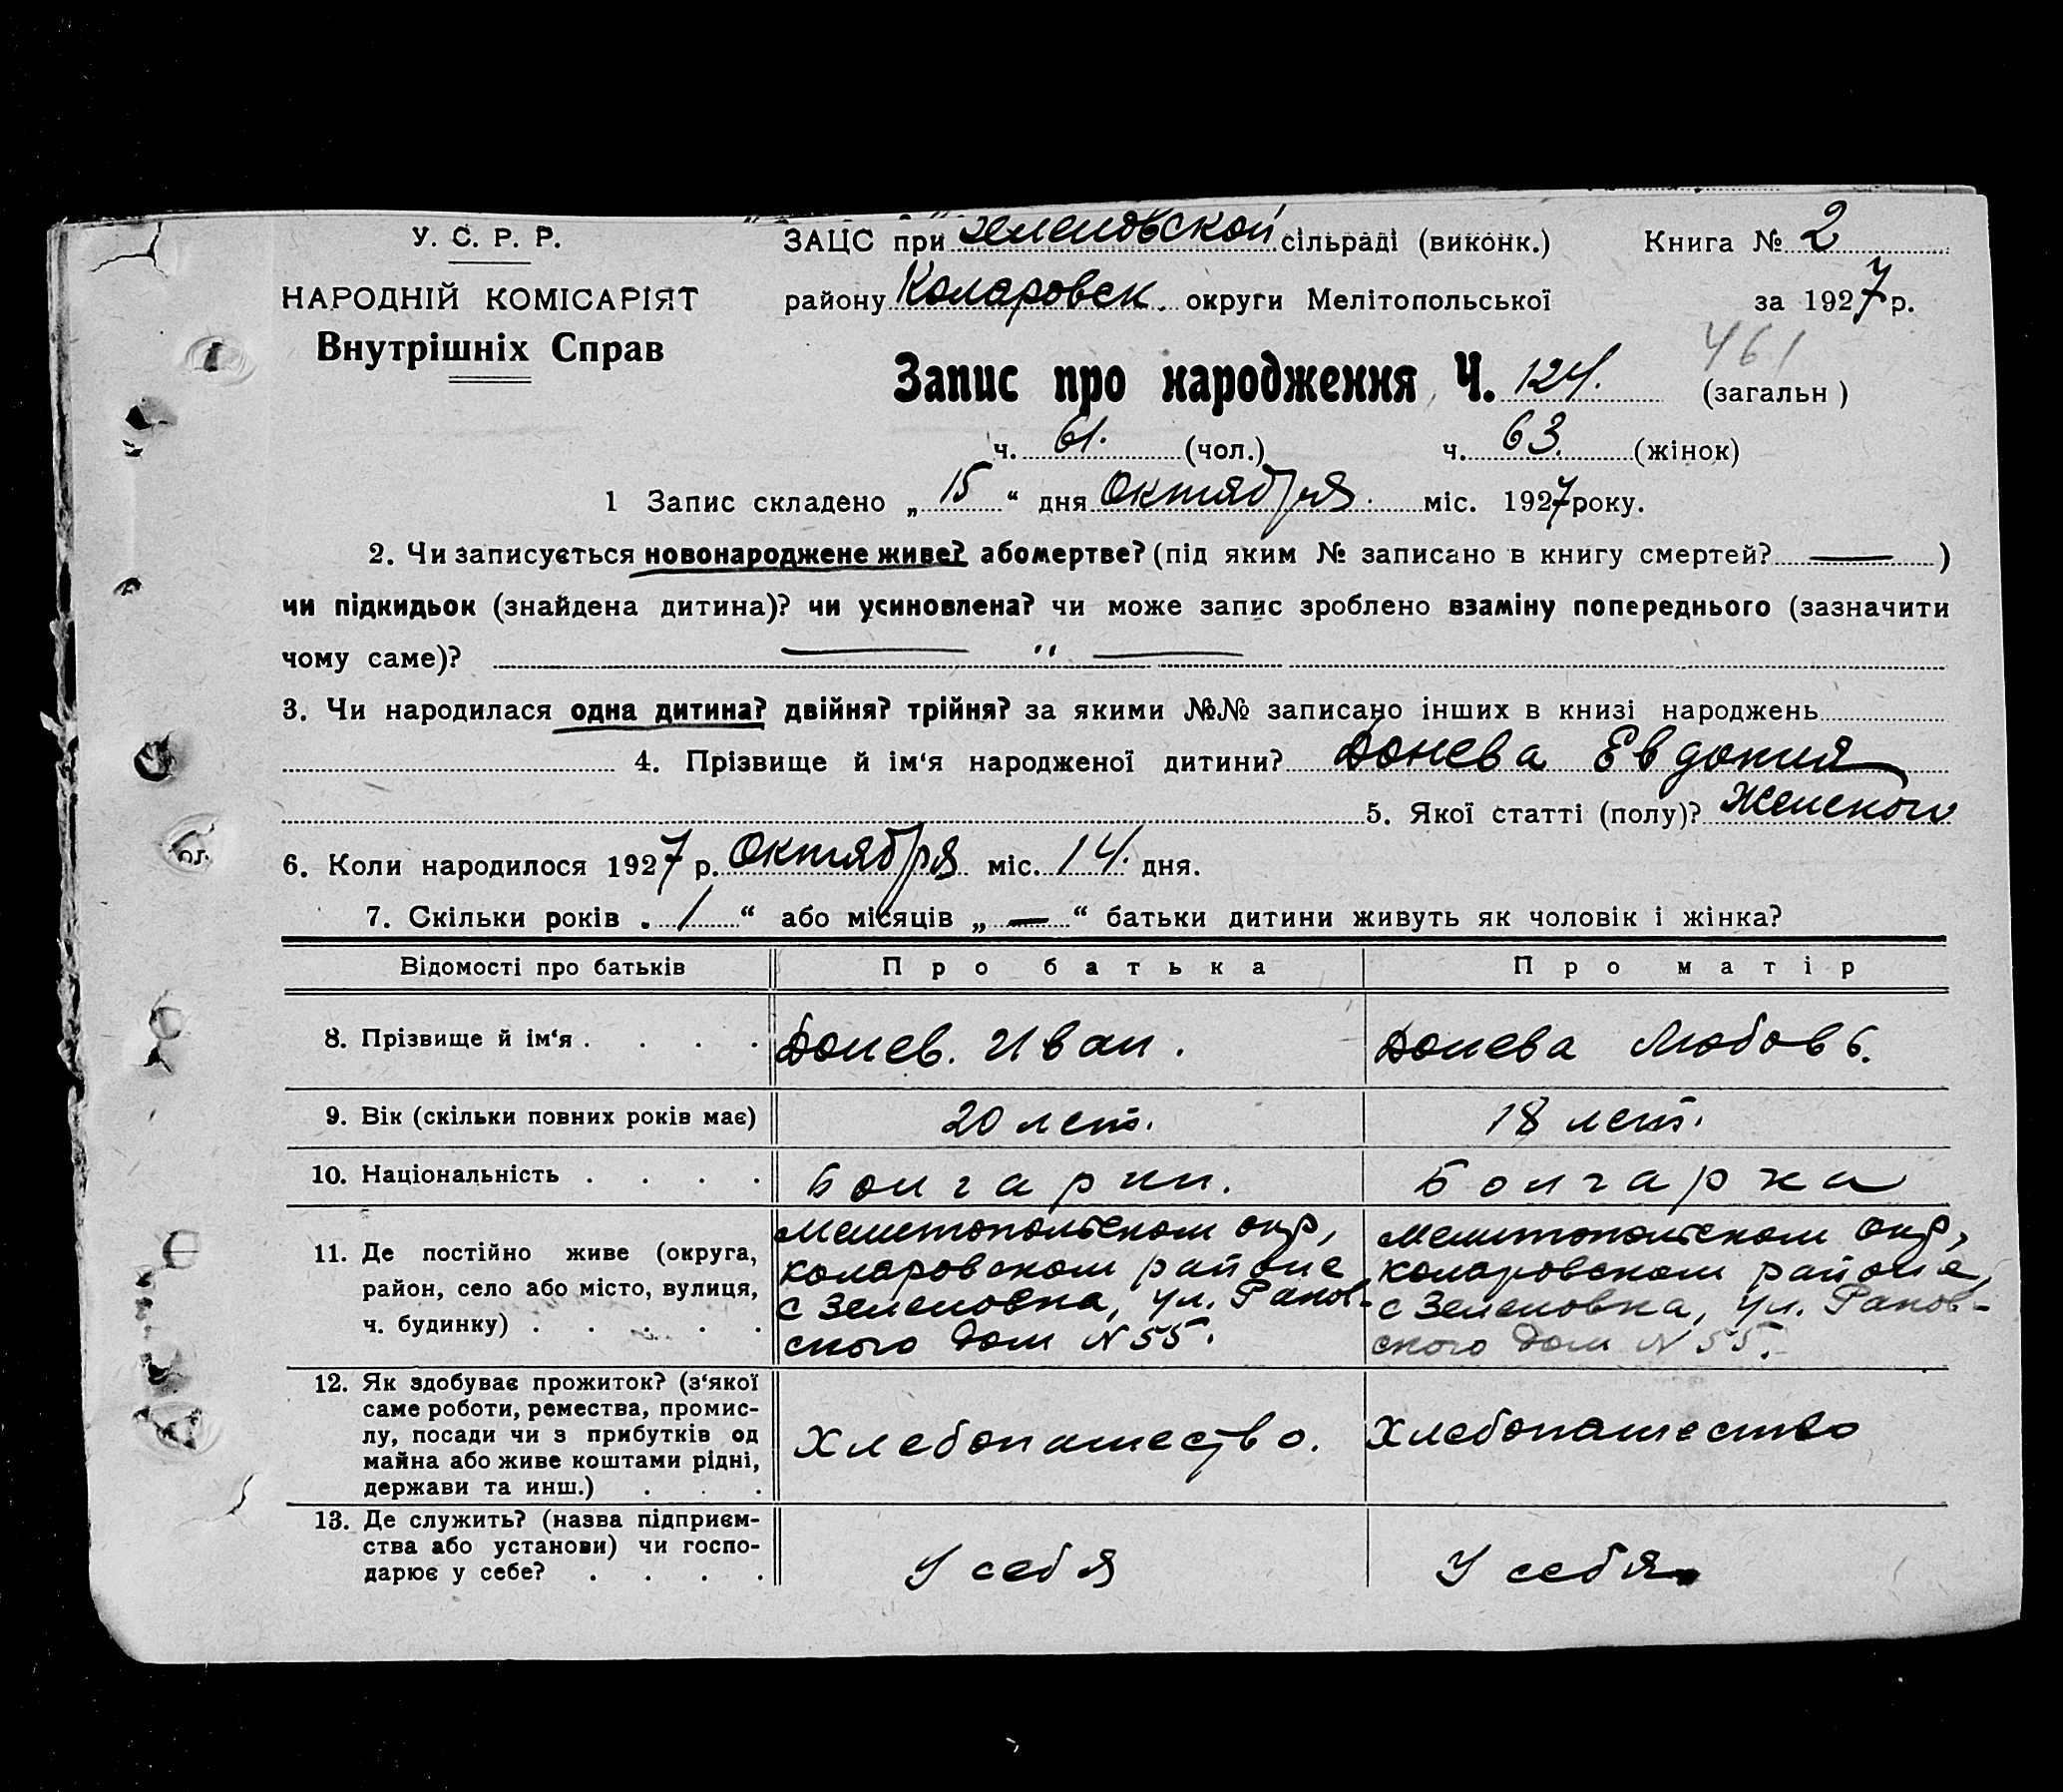 У. С. Р. Р.
НАРОДНІЙ КОМІСАРІЯТ
Внутрішніх Справ
ЗАЦС при Зеленовской сільраді (виконк.) Книга № 2
району Коларовск. округи Мелітопольської за 1927 р.
461
Запис про народження Ч. 124. (загальн)
ч. 61. (чол.) ч. 63. (жінок)
1 Запис складено „15“ дня Октября міс. 1927 року.
2. Чи записується новонароджене живе? або мертве? (під яким № записано в книгу смертей? — )
чи підкидьок (знайдена дитина)? чи усиновлена? чи може запис зроблено взаміну попереднього (зазначити
чому саме)? — „ —
3. Чи народилася одна дитина? двійня? трійня? за якими №№ записано інших в книзі народжень
4. Прізвище й ім‘я народженої дитини? Донева Евдокия
5. Якої статті (полу)? Женского
6. Коли народилося 1927 р. Октября міс. 14. дня.
7. Скільки років „1“ або місяців „—“ батьки дитини живуть як чоловік і жінка?
Відомості про батьків Про батька Про матір
8. Прізвище й ім‘я . . . . Донев. Иван. Донева Любовь.
9. Вік (скільки повних років має) 20 лет. 18 лет.
10. Національність . . . . Болгарин. Болгарка
11. Де постійно живе (округа,
район, село або місто, вулиця,
ч. будинку) . . . . .
Мелитопольском окр,
Коларовском районе
с Зеленовка, ул. Раков-
ского Дом N 55.
Мелитопольском окр,
Коларовском районе,
с Зеленовка, ул. Раков-
ского Дом N 55.
12. Як здобуває прожиток? (з‘якої
саме роботи, ремества, промис-
лу, посади чи з прибутків од
майна або живе коштами рідні,
держави та инш.) . . .
Хлебопашество. Хлебопашество
13. Де служить? (назва підприєм-
ства або установи) чи госпо-
дарює у себе? . . . .
У себя У себя